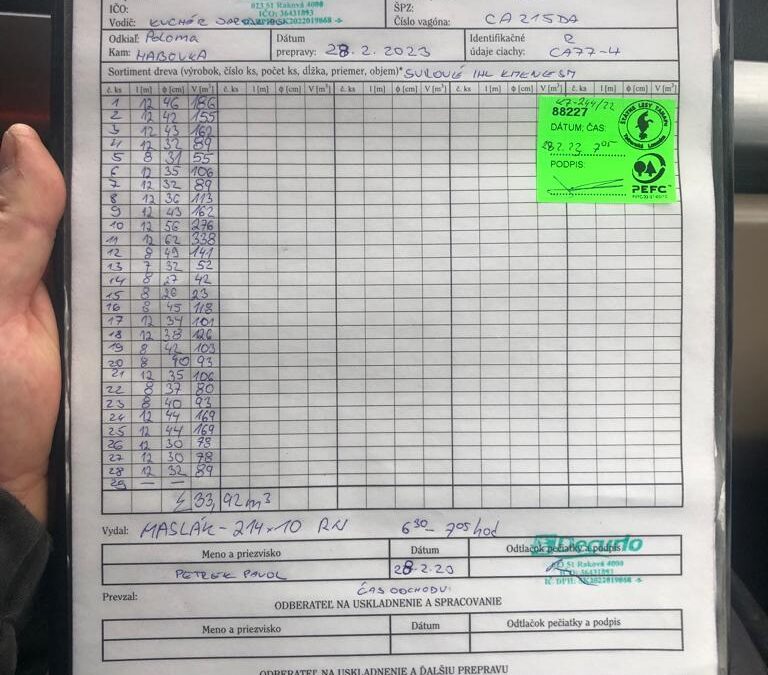 023 51 Raková 4000
IČO: IČO: 36431893 ŠPZ:
Vodič: KUCHÁR Číslo vagóna: CA 215DA
Odkiaľ: Paloma Dátum Identifikačné R
Kam: HABOVKA prepravy: 28. 2. 2023 údaje ciachy: CA77-4
Sortiment dreva (výrobok, číslo ks, počet ks, dĺžka, priemer, objem)* SUROVÉ IHL KMENE
č. ks l [m] ϕ [cm] V [m³] č. ks l [m] ϕ [cm] V [m³] č. ks l [m] ϕ [cm] V [m³] č. ks l [m] ϕ [cm] V [m³] č. ks l [m] ϕ [cm] V [m³]
1 12 46 186
2 12 42 155
3 12 43 162
4 12 32 89
5 8 31 55
6 12 35 106
7 12 32 89
8 12 36 113
9 12 43 162
10 12 56 276
11 12 62 338
12 8 49 141
13 7 32 52
14 8 27 42
15 8 20 23
16 8 45 118
17 12 34 101
18 12 38 126
19 8 42 103
20 8 40 93
21 12 35 106
22 8 37 80
23 8 40 93
24 12 44 169
25 12 44 169
26 12 30 78
27 12 30 78
28 12 32 89
29 — —
Σ 33,92 m³
47-244/22
88227
DÁTUM; ČAS:
28.2.23 7⁰⁵
PODPIS:
ŠTÁTNE LESY TANAPu
Tatranská Lomnica
PEFC™
Vydal: MASLÁK - 214×10 RN 6³⁰ - 7⁰⁵ hod
Meno a priezvisko Dátum Odtlačok pečiatky a podpis
PETREK PAVOL 28.2.23
023 51 Raková 4000
IČO: 36431893
IČ DPH: SK2022019868
ČAS ODCHODU:
Prevzal:
ODBERATEĽ NA USKLADNENIE A SPRACOVANIE
Meno a priezvisko Dátum Odtlačok pečiatky a podpis
ODBERATEĽ NA USKLADNENIE A ĎALŠIU PREPRAVU